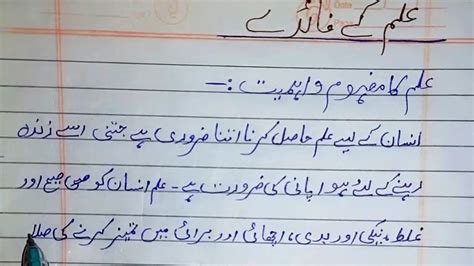 علم کے فائدے
علم کا مفہوم و اہمیت :-
انسان کے لیے علم حاصل کرنا اتنا ضروری ہے جتنی اسے زندہ
رہنے کے لئے ہوا پانی کی ضرورت ہے۔ علم انسان کو صحیح اور
غلط، نیکی اور بدی، اچھائی اور برائی میں تمیز کرنے کی صلا